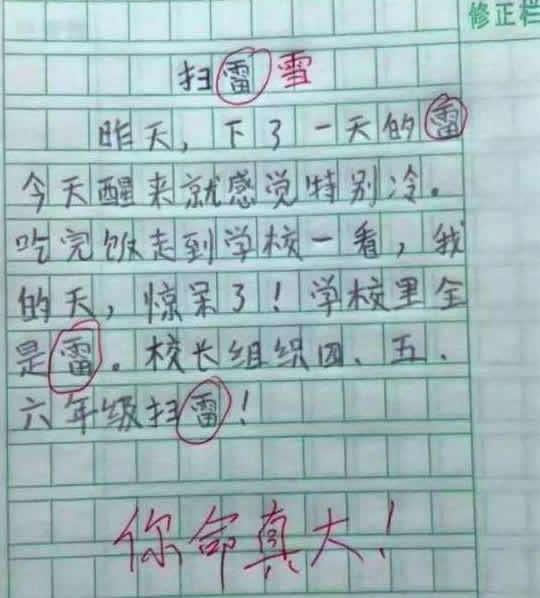 修正栏
扫雷 雪
昨天，下了一天的雷
今天醒来就感觉特别冷。
吃完饭走到学校一看，我
的天，惊呆了！学校里全
是雷。校长组织四、五、
六年级扫雷！
你命真大！